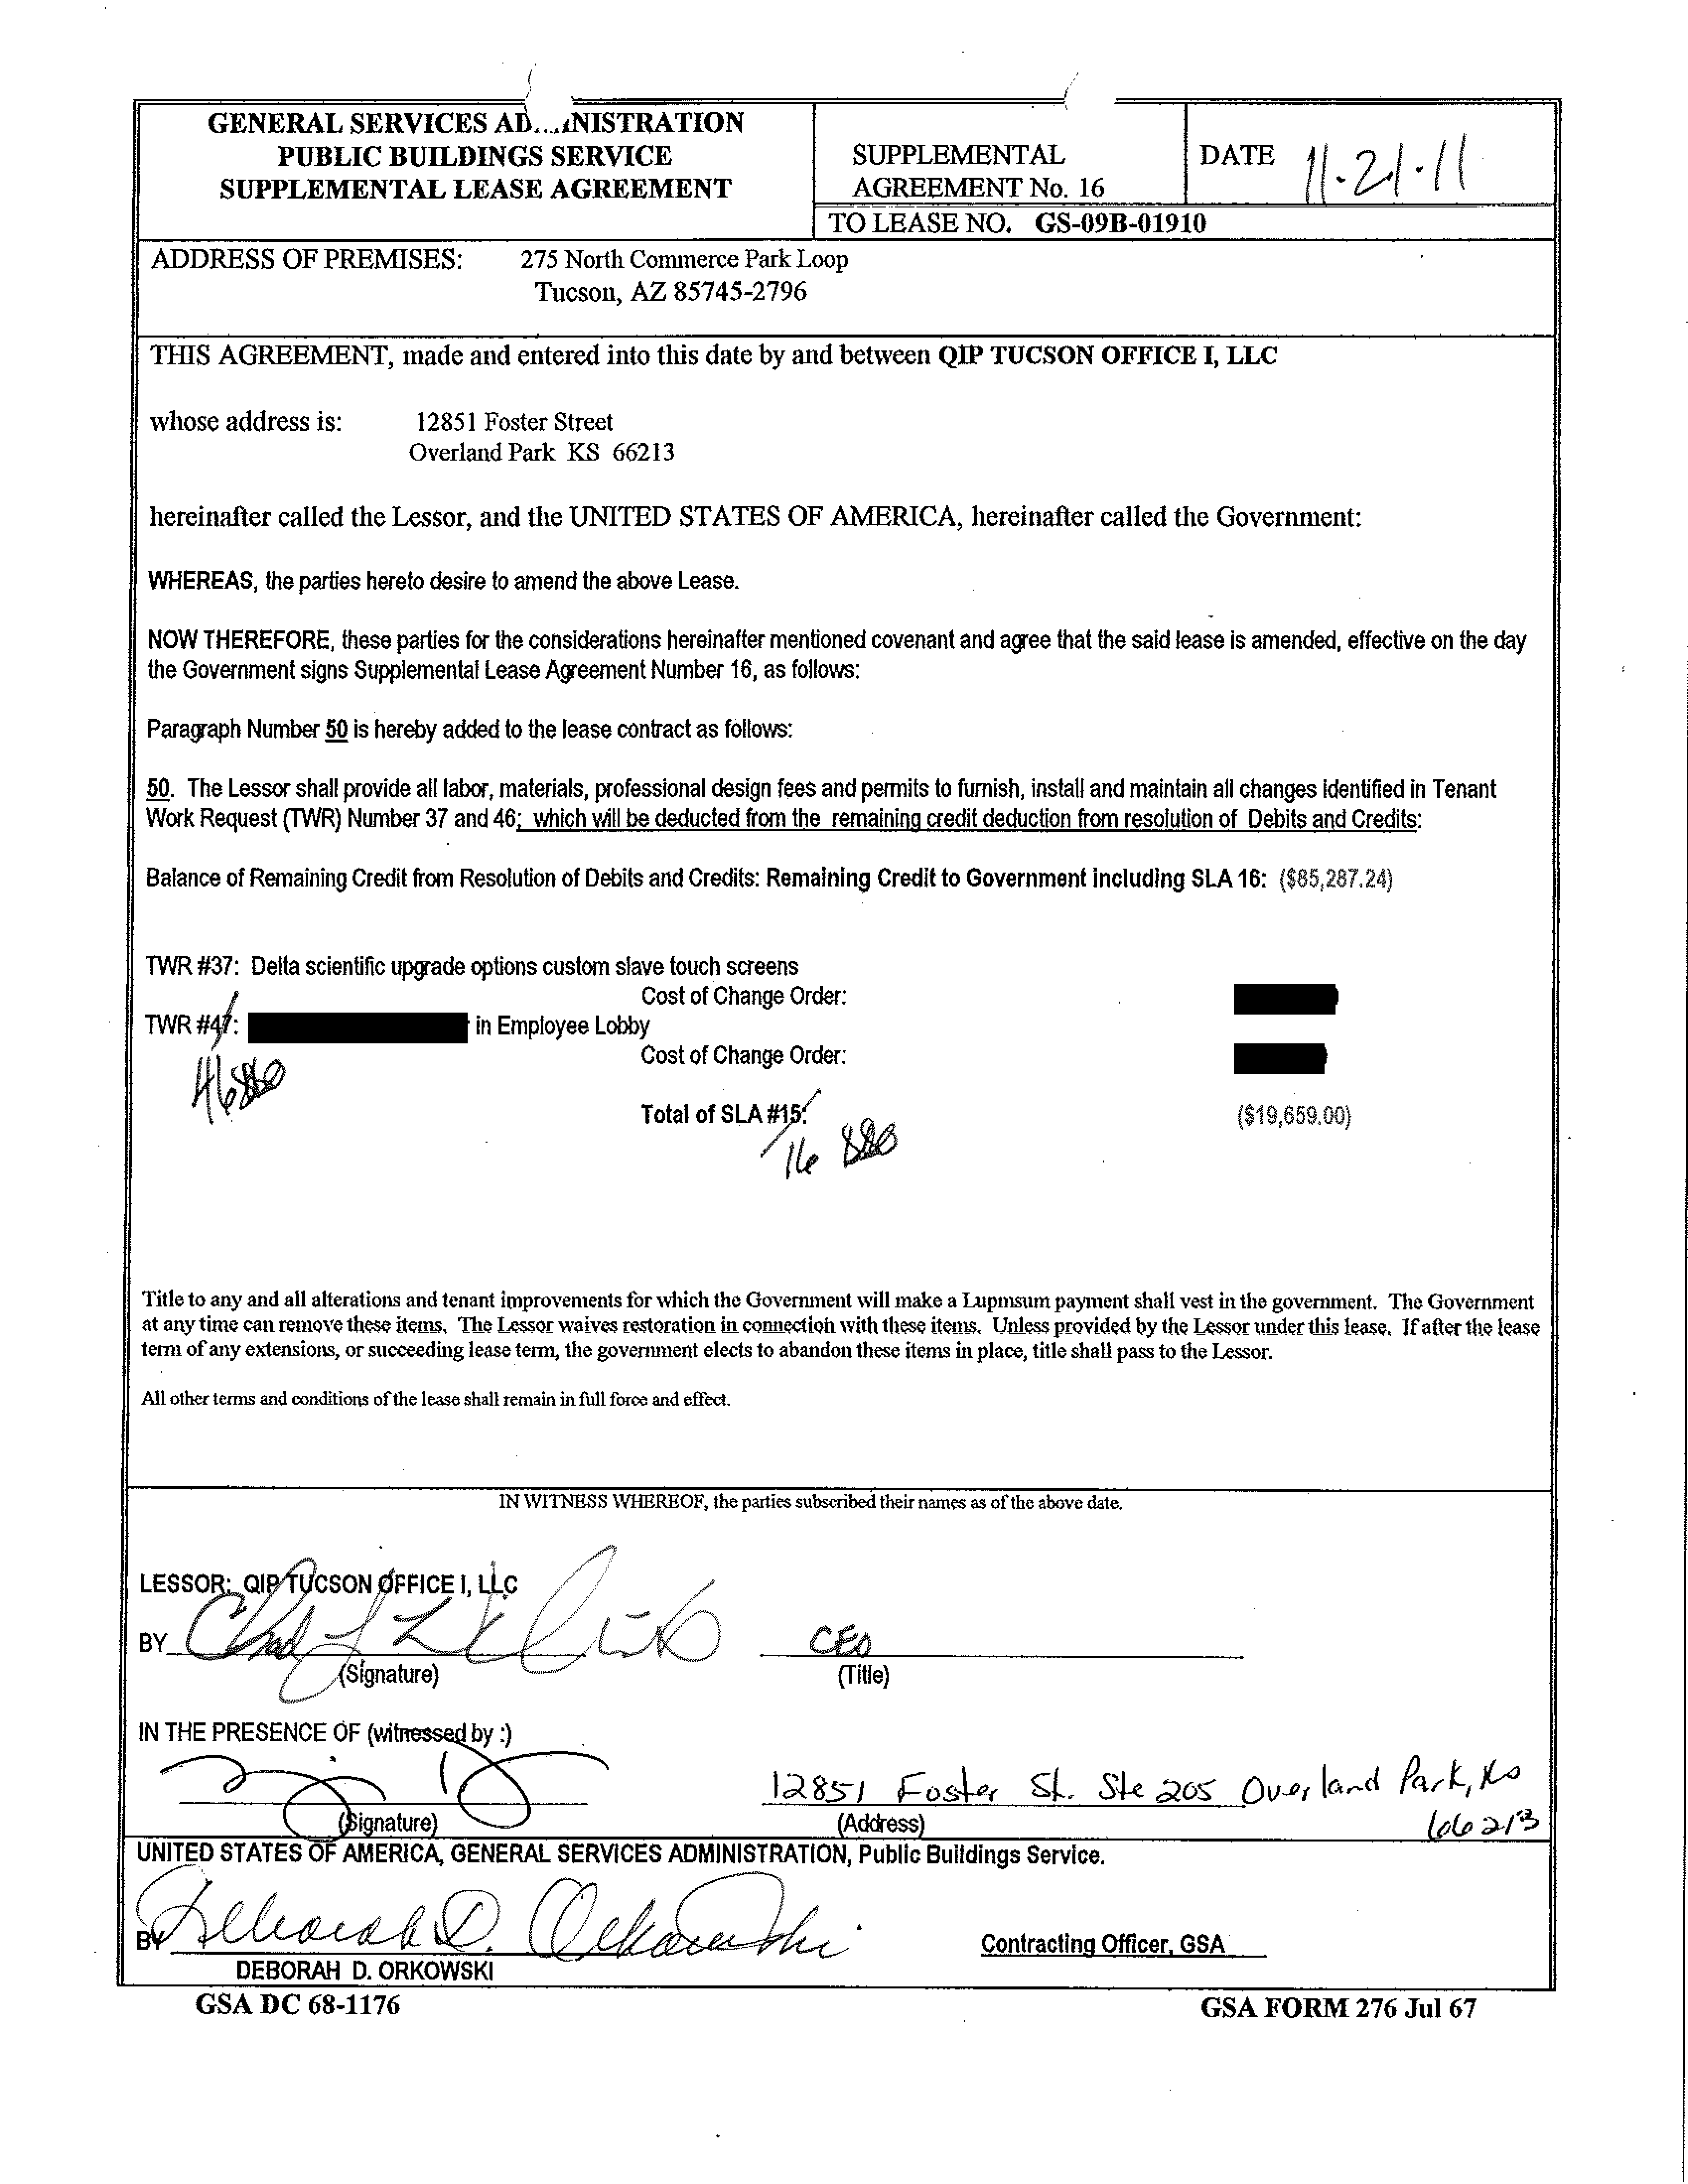 GENERAL SERVICES AD...INISTRATION
PUBLIC BUILDINGS SERVICE
SUPPLEMENTAL LEASE AGREEMENT
SUPPLEMENTAL
AGREEMENT No. 16
DATE 11-21-11
TO LEASE NO. GS-09B-01910
ADDRESS OF PREMISES: 275 North Commerce Park Loop
Tucson, AZ 85745-2796
THIS AGREEMENT, made and entered into this date by and between QIP TUCSON OFFICE I, LLC
whose address is: 12851 Foster Street
Overland Park KS 66213
hereinafter called the Lessor, and the UNITED STATES OF AMERICA, hereinafter called the Government:
WHEREAS, the parties hereto desire to amend the above Lease.
NOW THEREFORE, these parties for the considerations hereinafter mentioned covenant and agree that the said lease is amended, effective on the day
the Government signs Supplemental Lease Agreement Number 16, as follows:
Paragraph Number 50 is hereby added to the lease contract as follows:
50. The Lessor shall provide all labor, materials, professional design fees and permits to furnish, install and maintain all changes identified in Tenant
Work Request (TWR) Number 37 and 46; which will be deducted from the remaining credit deduction from resolution of Debits and Credits:
Balance of Remaining Credit from Resolution of Debits and Credits: Remaining Credit to Government including SLA 16: ($85,287.24)
TWR #37: Delta scientific upgrade options custom slave touch screens
Cost of Change Order:
TWR #47: in Employee Lobby
46
Cost of Change Order:
Total of SLA #15: ($19,659.00)
16
Title to any and all alterations and tenant improvements for which the Government will make a Lupmsum payment shall vest in the government. The Government
at any time can remove these items. The Lessor waives restoration in connection with these items. Unless provided by the Lessor under this lease. If after the lease
term of any extensions, or succeeding lease term, the government elects to abandon these items in place, title shall pass to the Lessor.
All other terms and conditions of the lease shall remain in full force and effect.
IN WITNESS WHEREOF, the parties subscribed their names as of the above date.
LESSOR: QIP TUCSON OFFICE I, LLC
BY CEO
(Signature) (Title)
IN THE PRESENCE OF (witnessed by :)
12851 Foster St. Ste 205 Overland Park, Ks
66213
(Signature) (Address)
UNITED STATES OF AMERICA, GENERAL SERVICES ADMINISTRATION, Public Buildings Service.
BY Deborah D. Orkowski Contracting Officer, GSA
DEBORAH D. ORKOWSKI
GSA DC 68-1176 GSA FORM 276 Jul 67